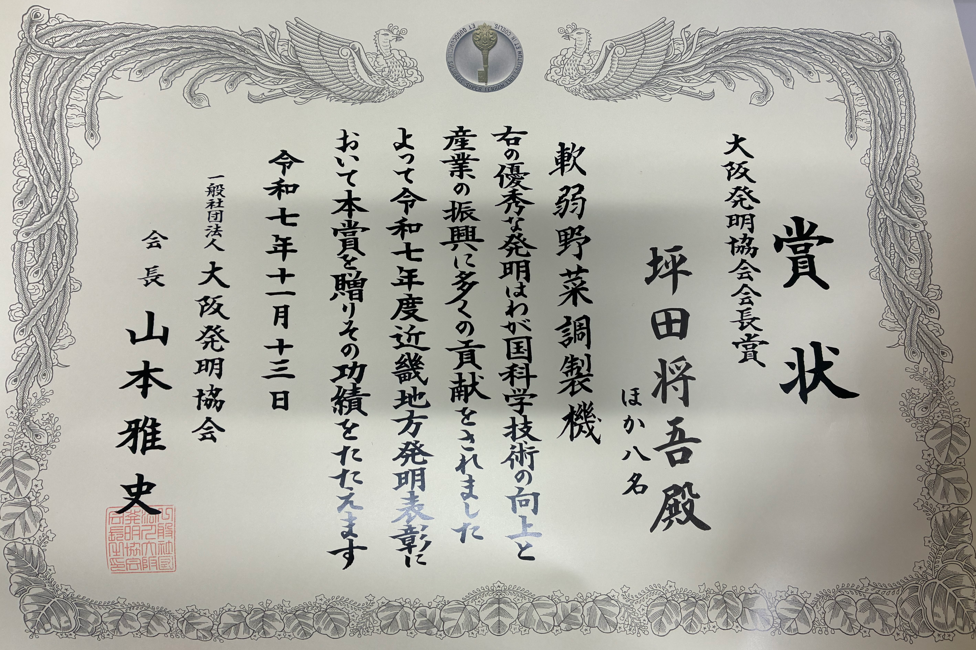 賞状
大阪発明協会会長賞
坪田将吾殿
ほか八名
軟弱野菜調製機
右の優秀な発明はわが国科学技術の向上と
産業の振興に多くの貢献をされました
よって令和七年度近畿地方発明表彰に
おいて本賞を贈りその功績をたたえます
令和七年十一月十三日
一般社団法人 大阪発明協会
会長 山本雅史